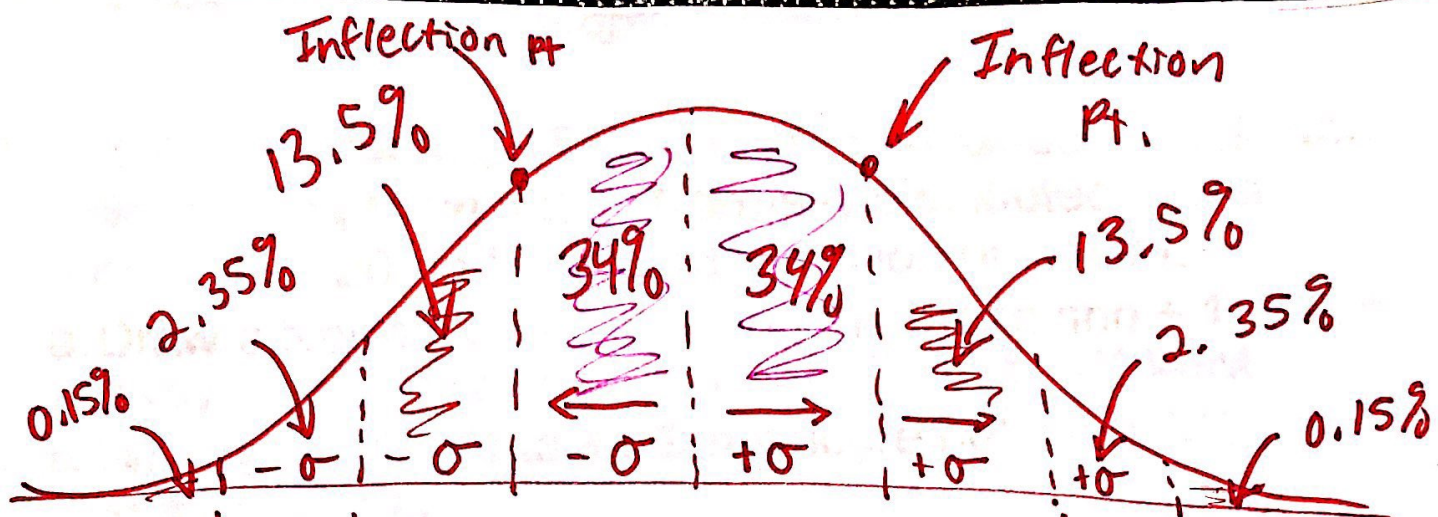 Inflection pt
Inflection
Pt.
13.5%
13.5%
2.35%
34%
34%
2.35%
0.15%
0.15%
-σ
-σ
-σ
+σ
+σ
+σ